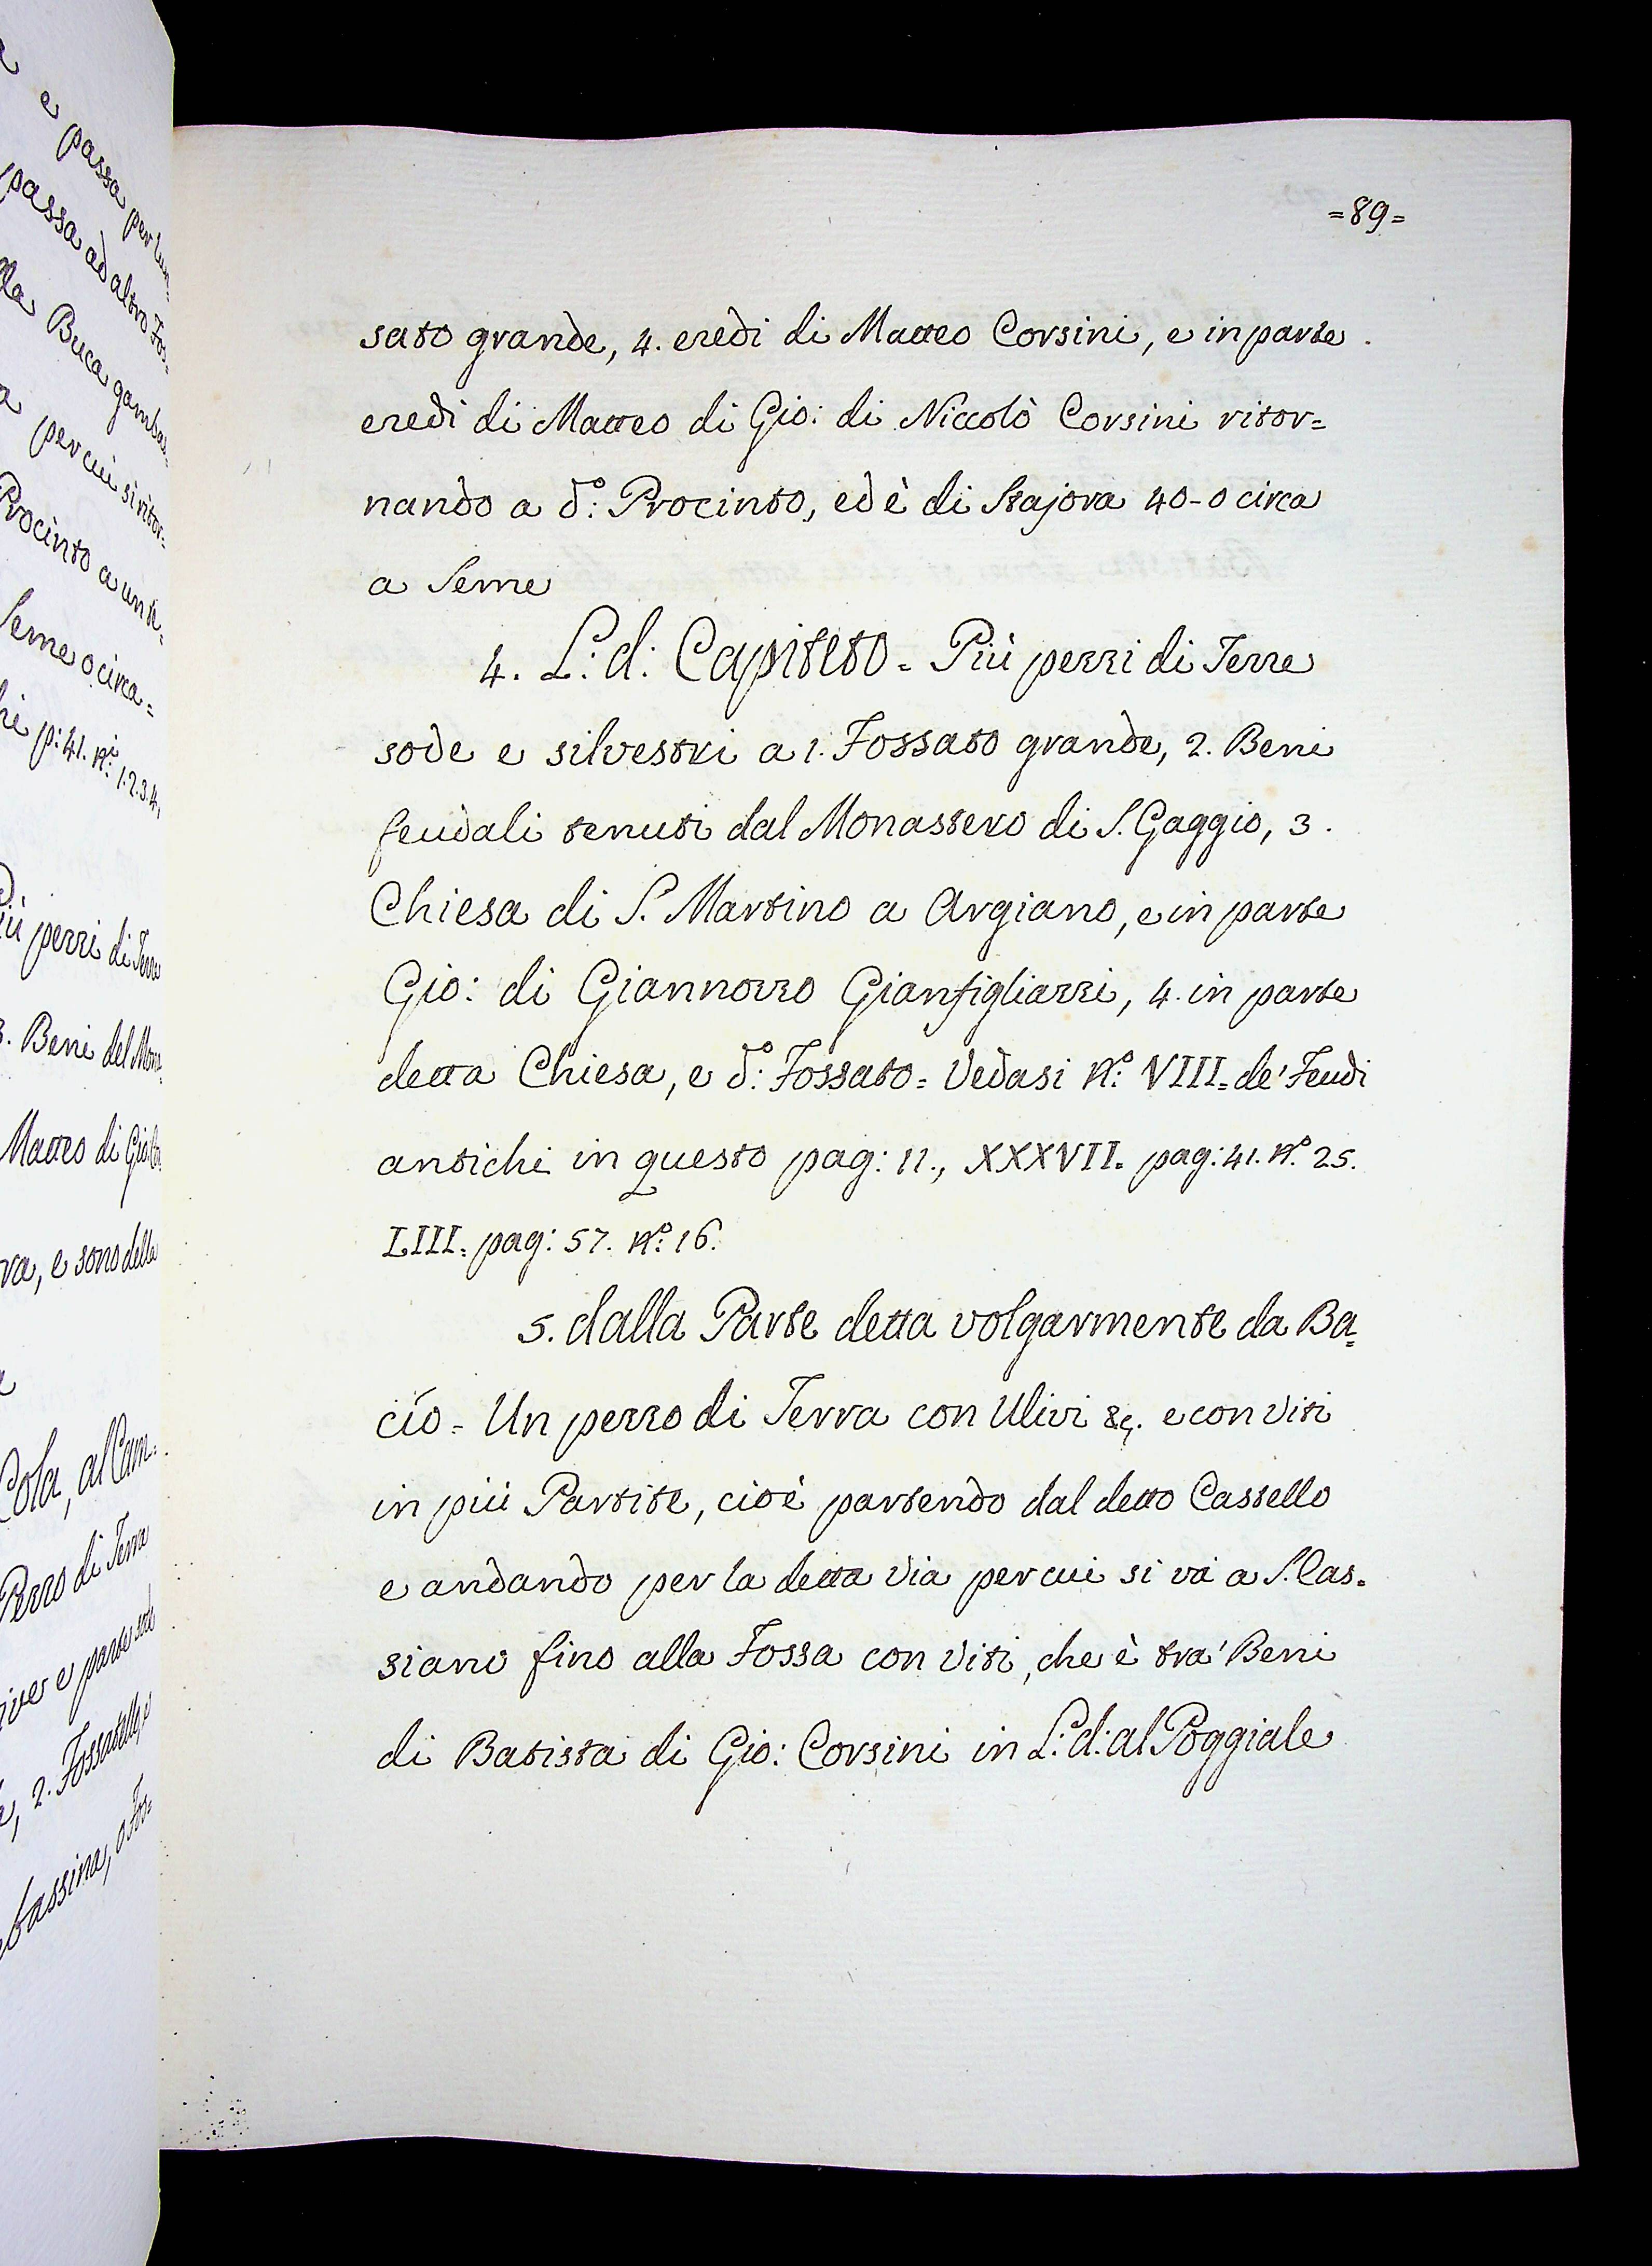 e passa per luo=
passa ad altro Fos=
lla Buca gamba=
per cui si ritor=
Procinto a un k=
Seme o circa=
p: 41. N.i 1.2.3.4.
più pezzi di Terre
3. Beni del Mona=
Matteo di Gio:
e sono delle
Cola, al Cam=
Pezzo di Terra
e parte sode
2. Fossatello, e
bassina, o Fos=
=89=
sato grande, 4. eredi di Matteo Corsini, e in parte
eredi di Matteo di Gio: di Niccolò Corsini ritor=
nando a d:o Procinto, ed è di Stajora 40-0 circa
a Seme
4. L: d: Capiteto = Più pezzi di Terre
sode e silvestri a 1. Fossato grande, 2. Beni
feudali tenuti dal Monastero di S. Gaggio, 3.
Chiesa di S. Martino a Argiano, e in parte
Gio: di Giannozzo Gianfigliazzi, 4. in parte
detta Chiesa, e d:o Fossato = Vedasi N:o VIII = de' Feudi
antichi in questo pag: 11., XXXVII. pag: 41. N:o 25.
LIII. pag: 57. N:o 16.
5. dalla Parte detta volgarmente da Ba=
cío = Un pezzo di Terra con Ulivi &c. e con Viti
in più Partite, cioè partendo dal detto Castello
e andando per la detta Via per cui si và a S. Cas=
siano fino alla Fossa con Viti, che è tra' Beni
di Batista di Gio: Corsini in L: d: al Poggiale